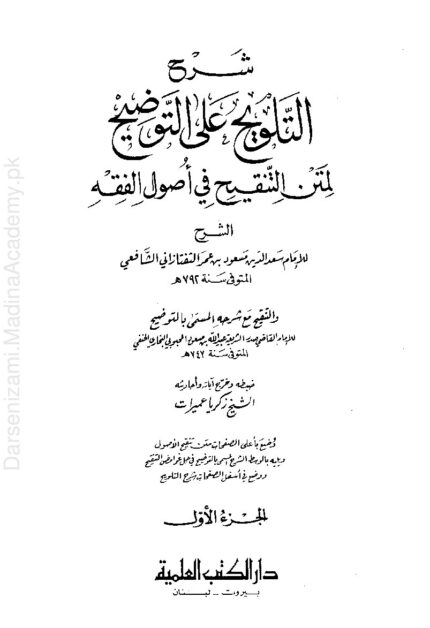 شرح
التلويح على التوضيح
لمتن التنقيح في أصول الفقه
الشرح
للإمام سعد الدين مسعود بن عمر التفتازاني الشافعي
المتوفى سنة ٧٩٢ هـ
والتنقيح مع شرحه المسمى بالتوضيح
للإمام القاضي صدر الشريعة عبيد الله بن مسعود المحبوبي البخاري الحنفي
المتوفى سنة ٧٤٧ هـ
ضبطه وخرج آياته وأحاديثه
الشيخ زكريا عميرات
وضع بأعلى الصفحات متن تنقيح الأصول
ويليه بالوسط الشرح المسمى بالتوضيح في حل غوامض التنقيح
ووضع في أسفل الصفحات شرح التلويح
الجزء الأول
دار الكتب العلمية
بيروت - لبنان
Darsenizami.MadinaAcademy.pk